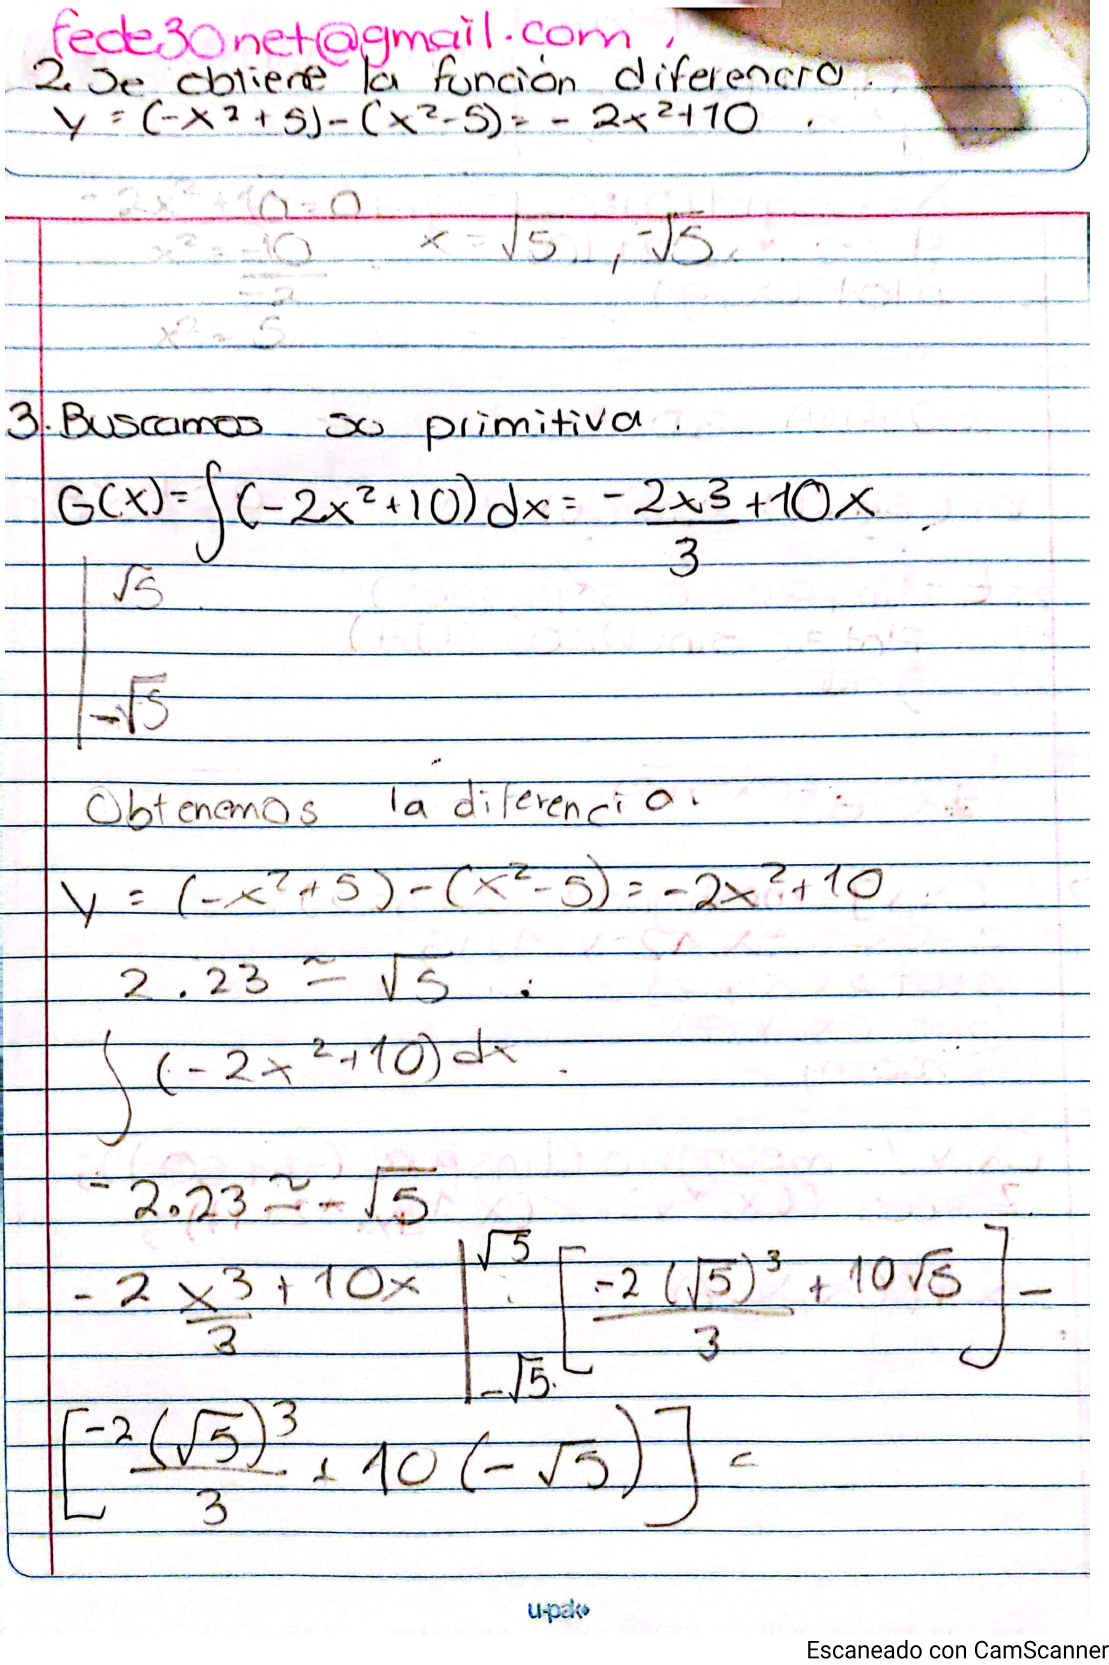 fede30net@gmail.com,
2. Se obtiene la función diferencia.
y = (-x²+5)-(x²-5)= - 2x²+10.
-2x²+10=0
x² = -10/-2 x = √5, -√5,
x² = 5
3. Buscamos su primitiva.
G(x)= ∫(-2x²+10)dx = -2x3/3 +10x
| √5
-√5
Obtenemos la diferencia.
y = (-x²+5)-(x²-5)=-2x²+10
2.23 ≃ √5 .
∫ (-2x²+10)dx
-2.23 ≃ -√5
-2 x3/3 + 10x |√5 -√5 [-2(√5)³/3 + 10√5] -
[-2(√5)3/3 + 10(-√5)] =
u-pak
Escaneado con CamScanner